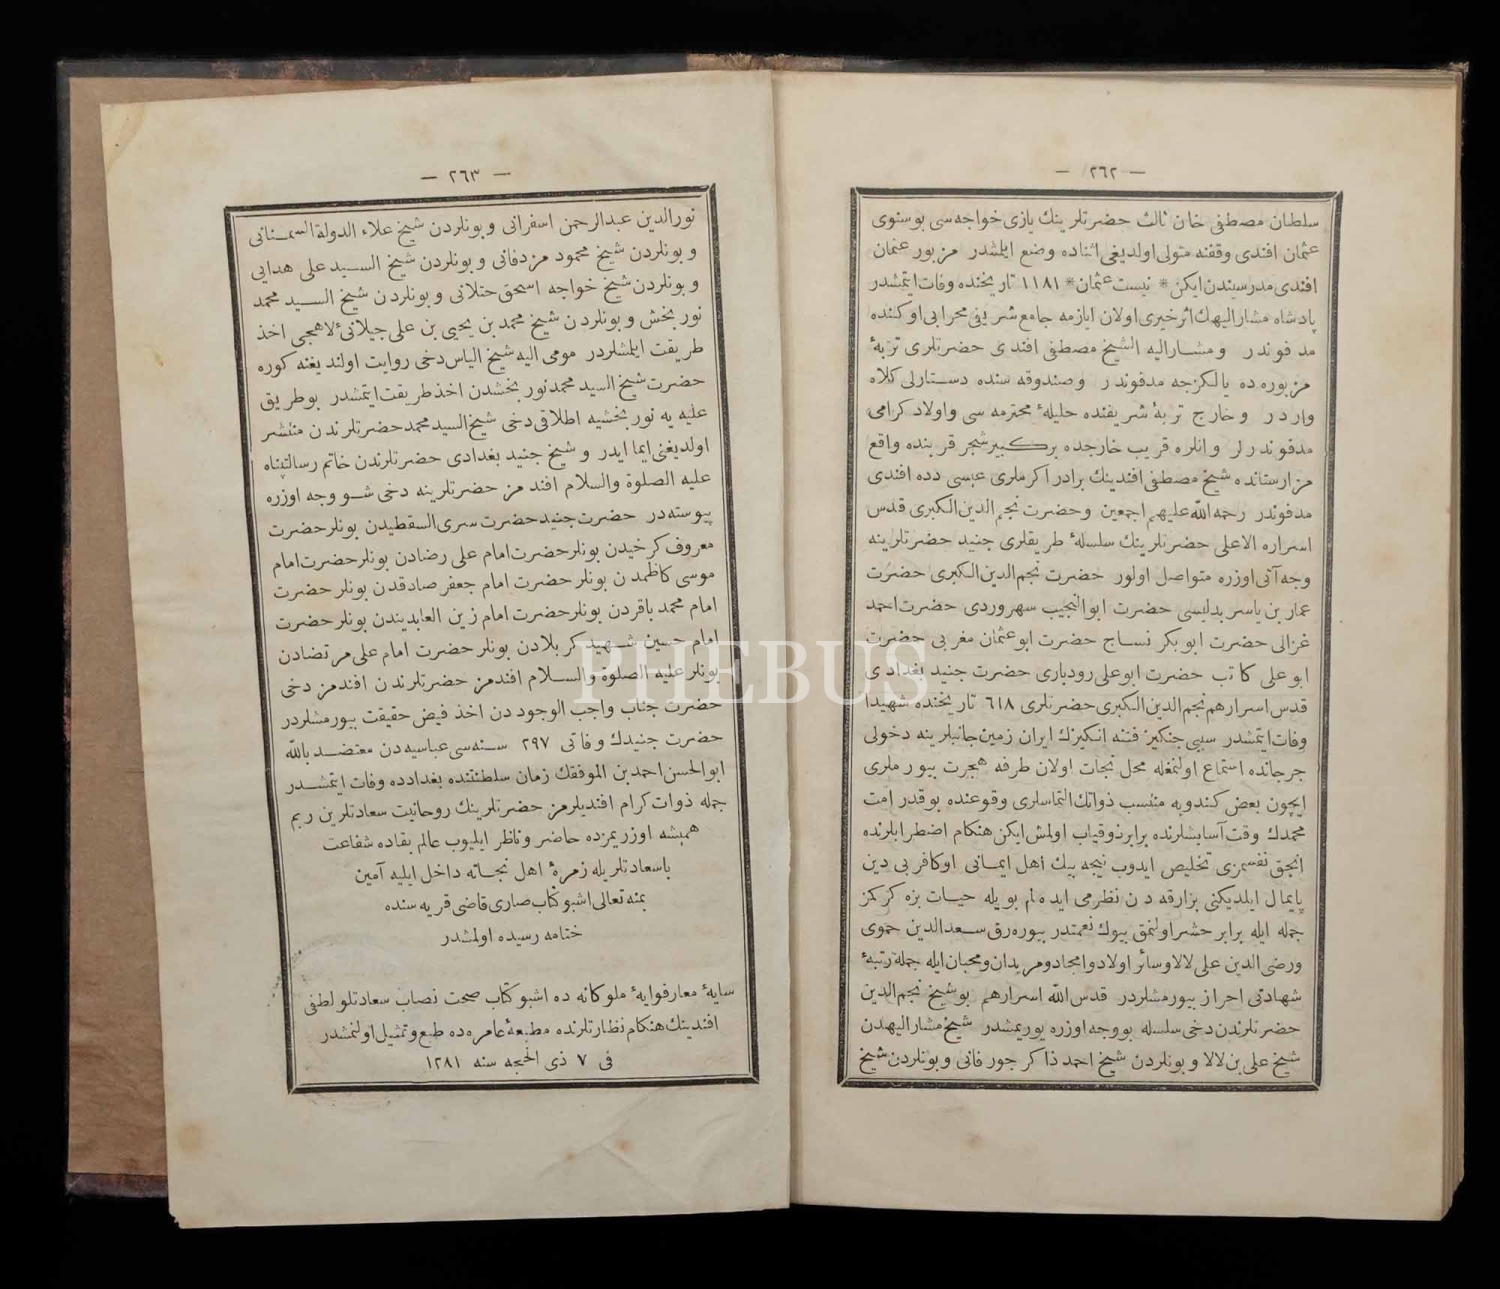 — ٢٦٢ —
سلطان مصطفی خان ثالث حضرتلرینك یازی خواجه سی بوسنوی
عثمان افندی وقفنه متولی اولدیغی اثناده وضع ایلمشدر مزبور عثمان
افندی مدرسیندن ایکن * نیست عثمان * ١١٨١ تاریخنده وفات ایتمشدر
پادشاه مشار الیهك اثر خیری اولان ایازمه جامع شریفی محرابی اوکنده
مدفوندر ومشار الیه الشیخ مصطفی افندی حضرتلری تربهٔ
مزبوره ده یالکزجه مدفوندر وصندوقه سنده دستارلی کلاه
واردر وخارج تربهٔ شریفنده حلیلهٔ محترمه سی واولاد کرامی
مدفوندرلر وانلره قریب خارجده برکبیر شجر قربنده واقع
مزارستانده شیخ مصطفی افندینك برادر اکرملری عبسی دده افندی
مدفوندر رحمه الله علیهم اجمعین وحضرت نجم الدین الکبری قدس
اسراره الاعلی حضرتلرینك سلسلهٔ طریقلری جنید حضرتلرینه
وجه آتی اوزره متواصل اولور حضرت نجم الدین الکبری حضرت
عمار بن یاسر بدلیسی حضرت ابو النجیب سهروردی حضرت احمد
غزالی حضرت ابو بکر نساج حضرت ابو عثمان مغربی حضرت
ابو علی کاتب حضرت ابو علی رودباری حضرت جنید بغدادی
قدس اسرارهم نجم الدین الکبری حضرتلری ٦١٨ تاریخنده شهیدا
وفات ایتمشدر سببی جنکیز فتنه انکیزك ایران زمین جانبلرینه دخولی
جرجانده استماع اولنمغله محل نجات اولان طرفه هجرت بیورملری
ایچون بعض کندوبه منتسب ذواتك التماسلری وقوعنده بوقدر امت
محمدك وقت آسایشلرنده برابر ذوقیاب اولمش ایکن هنکام اضطرابلرنده
انجق نفسمزی تخلیص ایدوب نیجه بیك اهل ایمانی او کافر بی دین
پایمال ایلدیکنی بزارقه دن نظرمی ایده لم بویله حیات بزه کرکمز
جمله ایله برابر حشر اولنمق بیوك نعمتدر بیوره رق سعد الدین حموی
ورضی الدین علی لالا وسائر اولاد وامجاد ومریدان ومحبان ایله جمله رتبهٔ
شهادتی احراز بیورمشلردر قدس الله اسرارهم بو شیخ نجم الدین
حضرتلرندن دخی سلسله بووجه اوزره یوریمشدر شیخ مشار الیهدن
شیخ علی بن لالا وبونلردن شیخ احمد ذاکر جورفانی وبونلردن شیخ
— ٢٦٣ —
نور الدین عبد الرحمن اسفرانی وبونلردن شیخ علاء الدولة السمنانی
وبونلردن شیخ محمود مزدفانی وبونلردن شیخ السید علی هدایی
وبونلردن شیخ خواجه اسحق ختلانی وبونلردن شیخ السید محمد
نور بخش وبونلردن شیخ محمد بن یحیی بن علی جیلانیٔ لاهجی اخذ
طریقت ایلمشلردر مومی الیه شیخ الیاس دخی روایت اولندیغنه کوره
حضرت شیخ السید محمد نور بخشدن اخذ طریقت ایتمشدر بو طریق
علیه یه نور بخشیه اطلاقی دخی شیخ السید محمد حضرتلرندن منتشر
اولدیغنی ایما ایدر وشیخ جنید بغدادی حضرتلرندن خاتم رسالتپناه
علیه الصلوة والسلام افندمز حضرتلرینه دخی شو وجه اوزره
پیوسته در حضرت جنید حضرت سری السقطیدن بونلر حضرت
معروف کرخیدن بونلر حضرت امام علی رضادن بونلر حضرت امام
موسی کاظمدن بونلر حضرت امام جعفر صادقدن بونلر حضرت
امام محمد باقردن بونلر حضرت امام زین العابدیندن بونلر حضرت
امام حسین شهید کربلادن بونلر حضرت امام علی مرتضادن
بونلر علیه الصلوة والسلام افندمز حضرتلرندن افندمز دخی
حضرت جناب واجب الوجوددن اخذ فیض حقیقت بیورمشلردر
حضرت جنیدك وفاتی ٢٩٧ سنه سی عباسیه دن معتضد بالله
ابو الحسن احمد بن الموفقك زمان سلطنتنده بغدادده وفات ایتمشدر
جمله ذوات کرام افندیلرمز حضرتلرینك روحانیت سعادتلرین ربم
همیشه اوزریمزده حاضر وناظر ایلیوب عالم بقاده شفاعت
باسعادتلریله زمرهٔ اهل نجاته داخل ایلیه آمین
بمنه تعالی اشبو کتاب صاری قاضی قریه سنده
ختامه رسیده اولمشدر
سایهٔ معارفوایهٔ ملوکانه ده اشبو کتاب صحت نصاب سعادتلو لطفی
افندینك هنکام نظارتلرنده مطبعهٔ عامره ده طبع وتمثیل اولنمشدر
فی ٧ ذی الحجه سنه ١٢٨١
PHEBUS